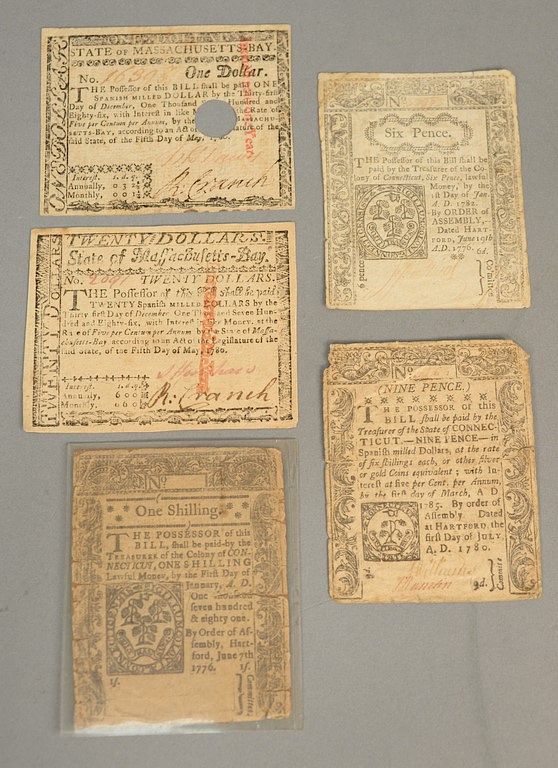 STATE OF MASSACHUSETTS-BAY.
No. One Dollar.
THE Possessor of this BILL shall be paid ONE
SPANISH MILLED DOLLAR by the Thirty-first
Day of December, One Thousand Hundred and
Eighty-six, with Interest in like Rate of
Five per Centum per Annum, by the
SETTS-BAY, according to an Act of the Legislature of the
said State, of the Fifth Day of May, 1780.
Interest. s. d. q.
Annually, 0 3 2
Monthly, 0 0 1
R. Cranch
ONE DOLLAR
TWENTY DOLLARS.
State of Massachusetts-Bay.
No. 2691 TWENTY DOLLARS.
THE Possessor of this Bill shall be paid
TWENTY Spanish MILLED DOLLARS by the
Thirty first Day of December One Thousand Seven Hundred
and Eighty-six, with Interest in like Money, at the
Rate of Five per Centum per Annum by the State of Massa-
chusetts-Bay, according to an Act of the Legislature of the
said State, of the Fifth Day of May, 1780.
Interest. s. d. q.
Annually. 6 0 0
Monthly. 0 6 0
R. Cranch
TWENTY DOLLARS
No
One Shilling.
THE POSSESSOR of this
BILL, shall be paid by the
TREASURER of the Colony of CON-
NECTICUT, ONE SHILLING
Lawful Money, by the First Day of
January, A. D.
One thousand
seven hundred
& eighty one.
By Order of As-
sembly, Hart-
ford, June 7th
1776. 1s.
1s.
Committee.
No
Six Pence.
THE Possessor of this Bill shall be
paid by the Treasurer of the Co-
lony of Connecticut, Six Pence, lawful
Money, by the
1st Day of Jan.
A. D. 1782.
By ORDER of
ASSEMBLY.
Dated HART-
FORD, June 19th
A.D. 1776. 6d.
6 pence
Comitte
No
(NINE PENCE.)
THE POSSESSOR of this
BILL shall be paid by the
Treasurer of the State of CONNEC-
TICUT.—NINE PENCE—in
Spanish milled Dollars, at the rate
of six shillings each, or other silver
or gold Coins equivalent; with In-
terest at five per Cent. per Annum,
by the first day of March, A D
1785. By order of
Assembly Dated
at HARTFORD, the
first Day of JULY,
A. D. 1780.
9d. 9d.
Committe